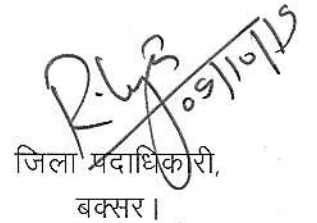 05/10/15
जिला पदाधिकारी,
बक्सर।